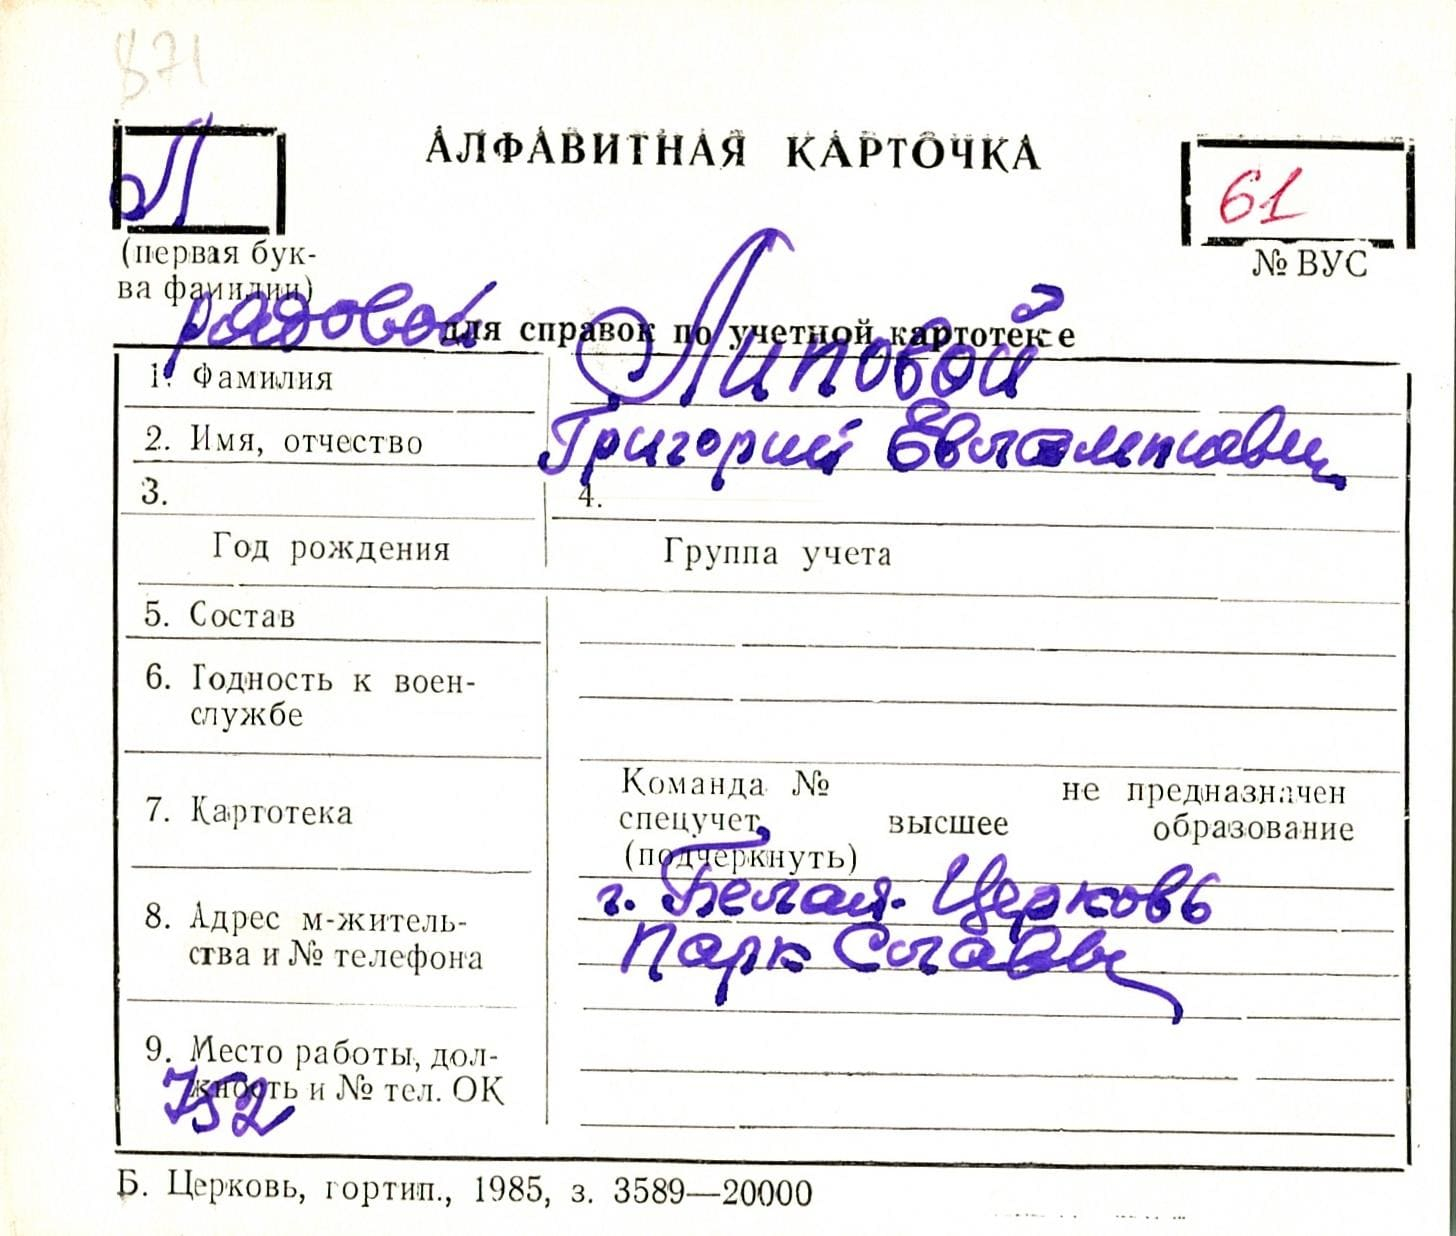 871
Л
АЛФАВИТНАЯ КАРТОЧКА
61
(первая бук-
ва фамилии)
№ ВУС
рядовой
для справок по учетной картотеке
1. Фамилия Липовой
2. Имя, отчество Григорий Евлампиеви
3. 4.
Год рождения Группа учета
5. Состав
6. Годность к воен-
службе
7. Картотека
Команда № не предназначен
спецучет, высшее образование
(подчеркнуть)
8. Адрес м-житель-
ства и № телефона
г. Белая-Церковь
Парк Славы
9. Место работы, дол-
жность и № тел. ОК
752
Б. Церковь, гортип., 1985, з. 3589—20000